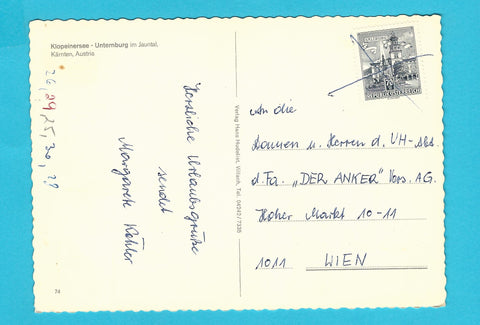 Klopeinersee - Unternburg im Jauntal,
Kärnten, Austria
26, 29, 25, 30, 28
Herzliche Urlaubsgrüße
sendet
Margarete Köhler
74
Verlag Hans Hudelist, Villach, Tel. 04242/7335
REPUBLIK ÖSTERREICH
An die
Damen u. Herren d. VH-Abt.
d. Fa. „DER ANKER" Vers. AG.
Hoher Markt 10-11
1011 WIEN